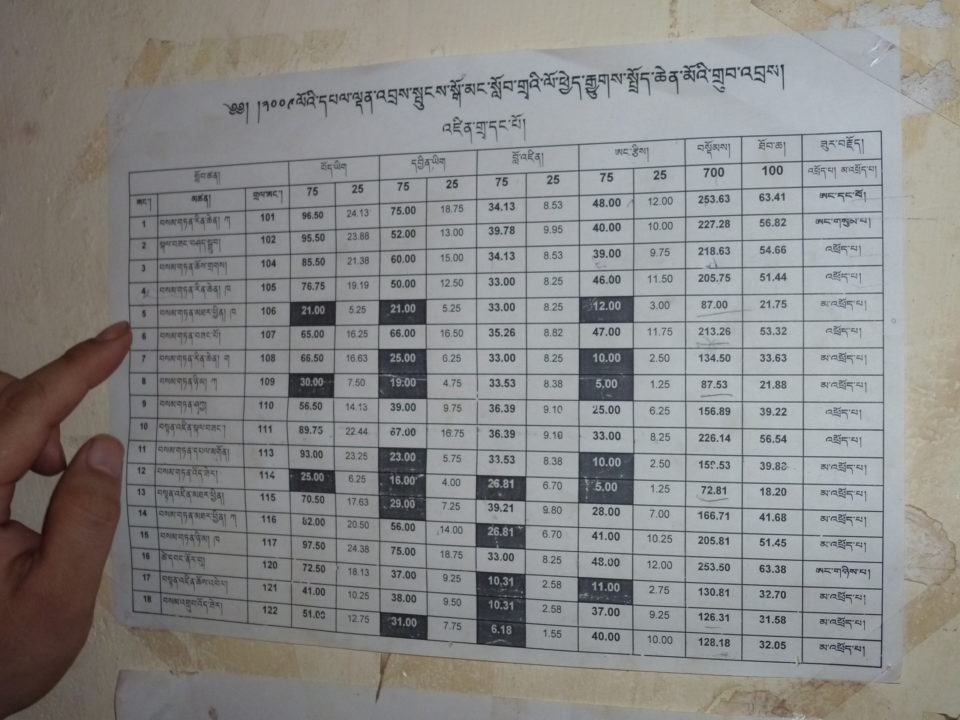 ༄༅། །༢༠༠༩ལོའི་དཔལ་ལྡན་འབྲས་སྤུངས་སྒོ་མང་སློབ་གྲྭའི་ལོ་ཕྱེད་རྒྱུགས་སྤྲོད་ཆེན་མོའི་གྲུབ་འབྲས།
འཛིན་གྲྭ་དང་པོ།
སློབ་ཚན། བོད་ཡིག དབྱིན་ཡིག བློ་འཛིན། ཨང་རྩིས། བསྡོམས། ཐོབ་ཆ། ཟུར་བརྗོད།
75 25 75 25 75 25 75 25 700 100 འཕྲོད་པ། མ་འཕྲོད་པ།
ཨང་། མཚན། གྲལ་ཨང་།
1 བསམ་གཏན་རིན་ཆེན། ཀ 101 96.50 24.13 75.00 18.75 34.13 8.53 48.00 12.00 253.63 63.41 ཨང་དང་པོ།
2 སྐལ་བཟང་བཤད་སྒྲུབ། 102 95.50 23.88 52.00 13.00 39.78 9.95 40.00 10.00 227.28 56.82 ཨང་གསུམ་པ།
3 བསམ་གཏན་ཆོས་གྲགས། 104 85.50 21.38 60.00 15.00 34.13 8.53 39.00 9.75 218.63 54.66 འཕྲོད་པ།
4 བསམ་གཏན་རིན་ཆེན། ཁ 105 76.75 19.19 50.00 12.50 33.00 8.25 46.00 11.50 205.75 51.44 འཕྲོད་པ།
5 བསམ་གཏན་མཐར་ཕྱིན། ཁ 106 21.00 5.25 21.00 5.25 33.00 8.25 12.00 3.00 87.00 21.75 མ་འཕྲོད་པ།
6 བསམ་གཏན་བཟང་པོ། 107 65.00 16.25 66.00 16.50 35.26 8.82 47.00 11.75 213.26 53.32 འཕྲོད་པ།
7 བསམ་གཏན་རིན་ཆེན། ག 108 66.50 16.63 25.00 6.25 33.00 8.25 10.00 2.50 134.50 33.63 མ་འཕྲོད་པ།
8 བསམ་གཏན་ཉི་མ། ཀ 109 30.00 7.50 19.00 4.75 33.53 8.38 5.00 1.25 87.53 21.88 མ་འཕྲོད་པ།
9 བསམ་གཏན་ཤཱཀྱ། 110 56.50 14.13 39.00 9.75 36.39 9.10 25.00 6.25 156.89 39.22 འཕྲོད་པ།
10 བསྟན་འཛིན་སྐལ་བཟང་། 111 89.75 22.44 67.00 16.75 36.39 9.10 33.00 8.25 226.14 56.54 འཕྲོད་པ།
11 བསམ་གཏན་དཔལ་མགོན། 113 93.00 23.25 23.00 5.75 33.53 8.38 10.00 2.50 159.53 39.88 མ་འཕྲོད་པ།
12 བསམ་གཏན་འོད་ཟེར། 114 25.00 6.25 16.00 4.00 26.81 6.70 5.00 1.25 72.81 18.20 མ་འཕྲོད་པ།
13 བསྟན་འཛིན་མཐར་ཕྱིན། 115 70.50 17.63 29.00 7.25 39.21 9.80 28.00 7.00 166.71 41.68 མ་འཕྲོད་པ།
14 བསམ་གཏན་མཐར་ཕྱིན། ཀ 116 82.00 20.50 56.00 14.00 26.81 6.70 41.00 10.25 205.81 51.45 མ་འཕྲོད་པ།
15 བསམ་གཏན་ཉི་མ། ཁ 117 97.50 24.38 75.00 18.75 33.00 8.25 48.00 12.00 253.50 63.38 ཨང་གཉིས་པ།
16 ཚེ་དབང་ནོར་བུ། 120 72.50 18.13 37.00 9.25 10.31 2.58 11.00 2.75 130.81 32.70 མ་འཕྲོད་པ།
17 121 41.00 10.25 38.00 9.50 10.31 2.58 37.00 9.25 126.31 31.58 མ་འཕྲོད་པ།
18 བསམ་འགྲུབ་འོད་ཟེར། 122 51.00 12.75 31.00 7.75 6.18 1.55 40.00 10.00 128.18 32.05 མ་འཕྲོད་པ།